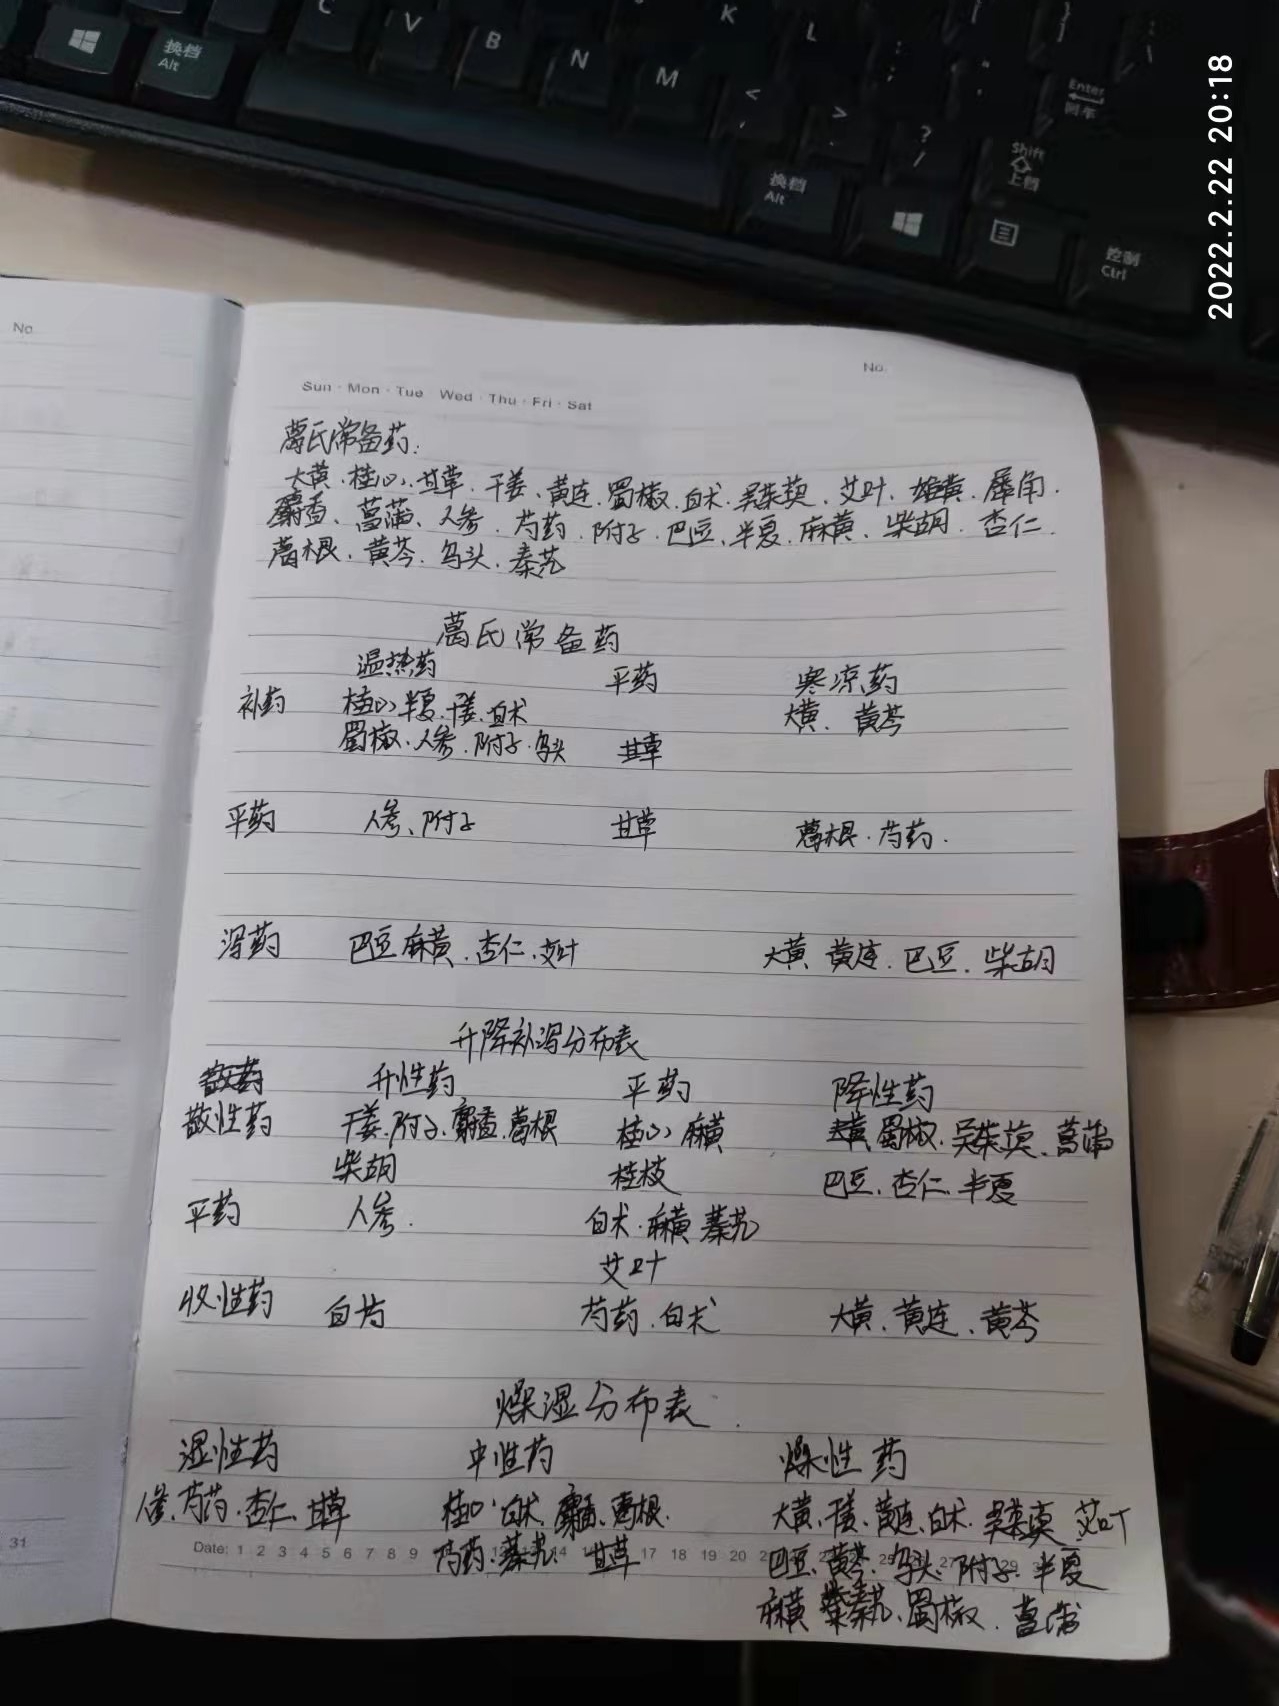 C V B N M K L
换档
Alt
< ,
> .
? /
Enter
回车
Shift
上档
换档
Alt
控制
Ctrl
2022.2.22 20:18
No.
No.
Sun · Mon · Tue Wed · Thu · Fri · Sat
葛氏常备药:
大黄、桂心、甘草、干姜、黄连、蜀椒、白术、吴茱萸、艾叶、雄黄、犀角、
麝香、菖蒲、人参、芍药、附子、巴豆、半夏、麻黄、柴胡、杏仁、
葛根、黄芩、乌头、秦艽
葛氏常备药
温热药 平药 寒凉药
补药 桂心、半夏、干姜、白术 大黄、黄芩
蜀椒、人参、附子、乌头 甘草
平药 人参、附子 甘草 葛根、芍药.
泻药 巴豆 麻黄、杏仁、艾叶 大黄 黄连、巴豆、柴胡
升降补泻分布表
散药 升性药 平药 降性药
散性药 干姜、附子、麝香、葛根 桂心、麻黄 大黄 蜀椒、吴茱萸、菖蒲
柴胡 桂枝 巴豆、杏仁、半夏
平药 人参. 白术、麻黄 秦艽
艾叶
收性药 白芍 芍药、白术 大黄、黄连、黄芩
燥湿分布表
湿性药 中性药 燥性药
人参、芍药、杏仁、甘草 桂心、白术、麝香、葛根. 大黄、干姜、黄连、白术、吴茱萸 艾叶
芍药、秦艽、甘草 巴豆、黄芩、乌头、附子、半夏
31
Date: 1 2 3 4 5 6 7 8 9 14 17 18 19 20 27 29
麻黄 秦艽、蜀椒、菖蒲